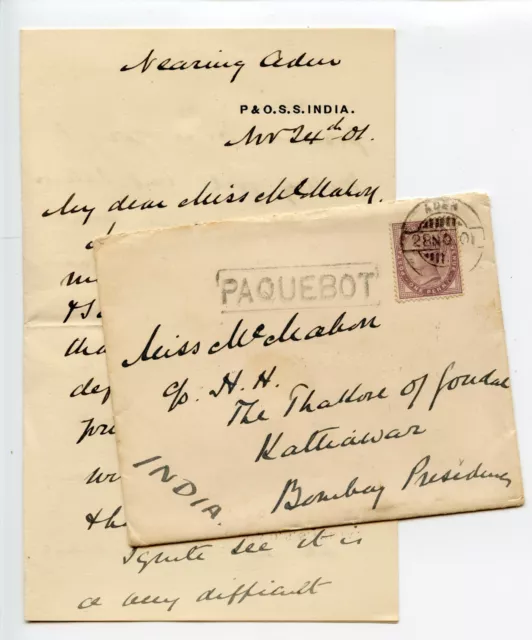 Nearing Aden
P & O. S. S. INDIA.
Nov 24th 01.
My dear Miss McMahon,
I quite see it is
a very difficult
ADEN
28 NO
PAQUEBOT
Miss McMahon
c/o. H. H.
The Thakore of Gondal
Kattiawar
Bombay Presidency
INDIA.